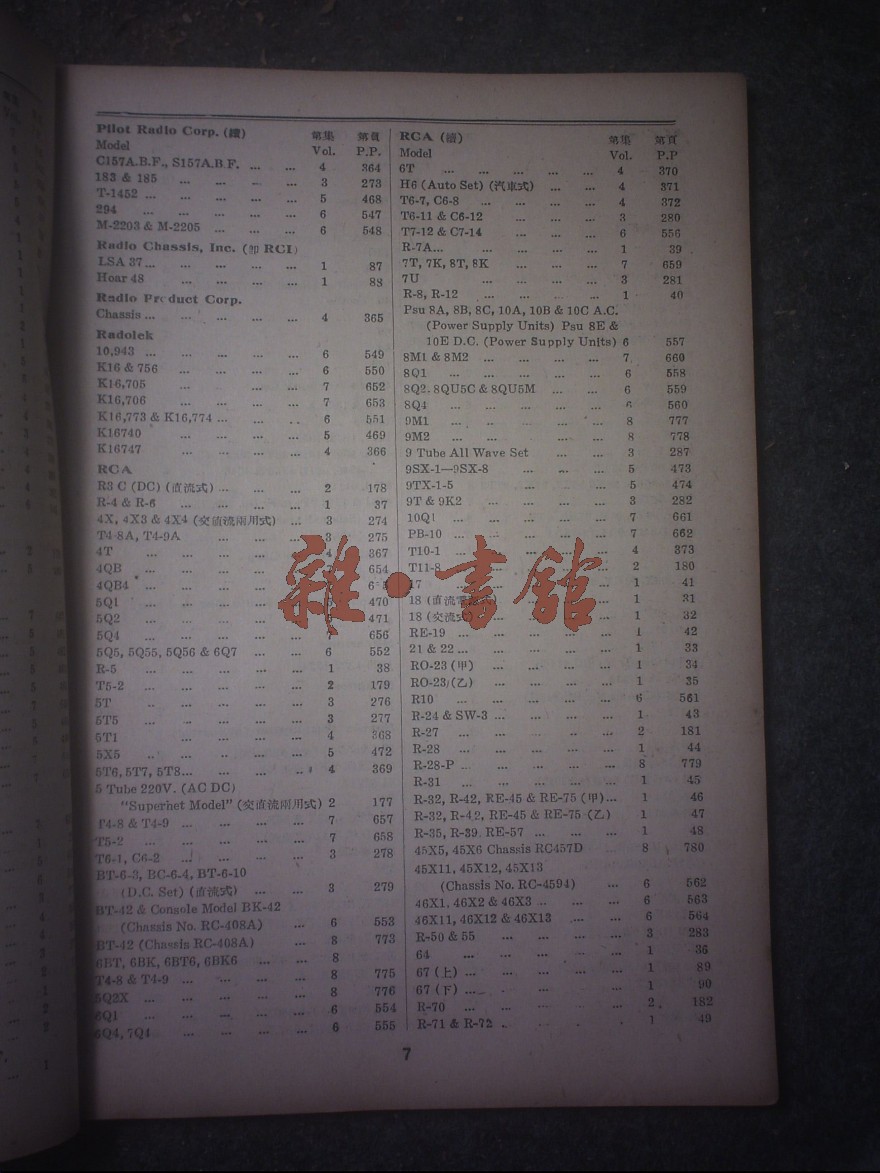 Pilot Radio Corp. (續) 第集 第頁
Model Vol. P.P.
C157A.B.F., S157A.B.F. ... ... 4 364
183 & 185 ... ... ... ... 3 273
T-1452 ... ... ... ... ... 5 468
294 ... ... ... ... ... 6 547
M-2203 & M-2205 ... ... ... 6 548
Radio Chassis, Inc. (卽 RCI)
LSA 37... ... ... ... ... 1 87
Hoar 48 ... ... ... ... 1 88
Radio Product Corp.
Chassis... ... ... ... ... 4 365
Radolek
10,943 ... ... ... ... ... 6 549
K16 & 756 ... ... ... ... 6 550
K16,705 ... ... ... ... 7 652
K16,706 ... ... ... ... 7 653
K16,773 & K16,774 ... ... ... 6 551
K16740 ... ... ... ... 5 469
K16747 ... ... ... ... 4 366
RCA
R3 C (DC) (直流式) ... ... ... 2 178
R-4 & R-6 ... ... ... ... 1 37
4X, 4X3 & 4X4 (交直流兩用式) ... 3 274
T4-8A, T4-9A ... ... ... 3 275
4T ... ... ... ... ... 4 367
4QB ... ... ... ... 654
4QB4 ... ... ... ...
5Q1 ... ... ... ... ... 470
5Q2 ... ... ... ... ... 471
5Q4 ... ... ... ... ... 7 656
5Q5, 5Q55, 5Q56 & 6Q7 ... ... 6 552
R-5 ... ... ... ... ... 1 38
T5-2 ... ... ... ... ... 2 179
5T ... ... ... ... ... 3 276
5T5 ... ... ... ... ... 3 277
5T1 ... ... ... ... ... 4 368
5X5 ... ... ... ... ... 5 472
5T6, 5T7, 5T8... ... ... ... 4 369
5 Tube 220V. (AC DC)
"Superhet Model" (交直流兩用式) 2 177
T4-8 & T4-9 ... ... ... ... 7 657
T5-2 ... ... ... ... ... 7 658
T6-1, C6-2 ... ... ... ... 3 278
BT-6-3, BC-6-4, BT-6-10
(D.C. Set) (直流式) ... ... 3 279
BT-42 & Console Model BK-42
(Chassis No. RC-408A) ... 6 553
BT-42 (Chassis RC-408A) ... 8 773
6BT, 6BK, 6BT6, 6BK6 ... ... 8
T4-8 & T4-9 ... ... ... ... 8 775
5Q2X ... ... ... ... ... 8 776
6Q1 ... ... ... ... ... 6 554
6Q4, 7Q4 ... ... ... ... 6 555
RCA (續) 第集 第頁
Model Vol. P.P
6T ... ... ... ... ... 4 370
H6 (Auto Set) (汽車式) ... ... 4 371
T6-7, C6-8 ... ... ... ... 4 372
T6-11 & C6-12 ... ... ... 3 280
T7-12 & C7-14 ... ... ... 6 556
R-7A... ... ... ... ... 1 39
7T, 7K, 8T, 8K ... ... ... 7 659
7U ... ... ... ... ... 3 281
R-8, R-12 ... ... ... ... 1 40
Psu 8A, 8B, 8C, 10A, 10B & 10C A.C.
(Power Supply Units) Psu 8E &
10E D.C. (Power Supply Units) 6 557
8M1 & 8M2 ... ... ... ... 7 660
8Q1 ... ... ... ... ... 6 558
8Q2, 8QU5C & 8QU5M ... ... 6 559
8Q4 ... ... ... ... ... 6 560
9M1 ... ... ... ... ... 8 777
9M2 ... ... ... ... ... 8 778
9 Tube All Wave Set ... ... 3 287
9SX-1—9SX-8 ... ... ... 5 473
9TX-1-5 ... ... ... 5 474
9T & 9K2 ... ... ... ... 3 282
10Q1 ... ... ... ... ... 7 661
PB-10 ... ... ... ... ... 7 662
T10-1 ... ... ... ... ... 4 373
T11-8 ... ... ... ... 2 180
17 ... ... ... 1 41
18 (直流電 ... 1 31
18 (交流式) ... ... 1 32
RE-19 ... ... ... ... ... 1 42
21 & 22 ... ... ... ... ... 1 33
RO-23 (甲) ... ... ... ... 1 34
RO-23 (乙) ... ... ... ... 1 35
R10 ... ... ... ... ... 6 561
R-24 & SW-3 ... ... ... ... 1 43
R-27 ... ... ... ... ... 2 181
R-28 ... ... ... ... ... 1 44
R-28-P ... ... ... ... ... 8 779
R-31 ... ... ... ... ... 1 45
R-32, R-42, RE-45 & RE-75 (甲)... 1 46
R-32, R-42, RE-45 & RE-75 (乙) 1 47
R-35, R-39, RE-57 ... ... ... 1 48
45X5, 45X6 Chassis RC457D 8 780
45X11, 45X12, 45X13
(Chassis No. RC-4594) ... 6 562
46X1, 46X2 & 46X3 ... ... ... 6 563
46X11, 46X12 & 46X13 ... ... 6 564
R-50 & 55 ... ... ... ... 3 283
64 ... ... ... ... ... 1 36
67 (上) ... ... ... ... ... 1 89
67 (下) ... ... ... ... ... 1 90
R-70 ... ... ... ... ... 2 182
R-71 & R-72 ... ... ... ... 1 49
7
雜·書館